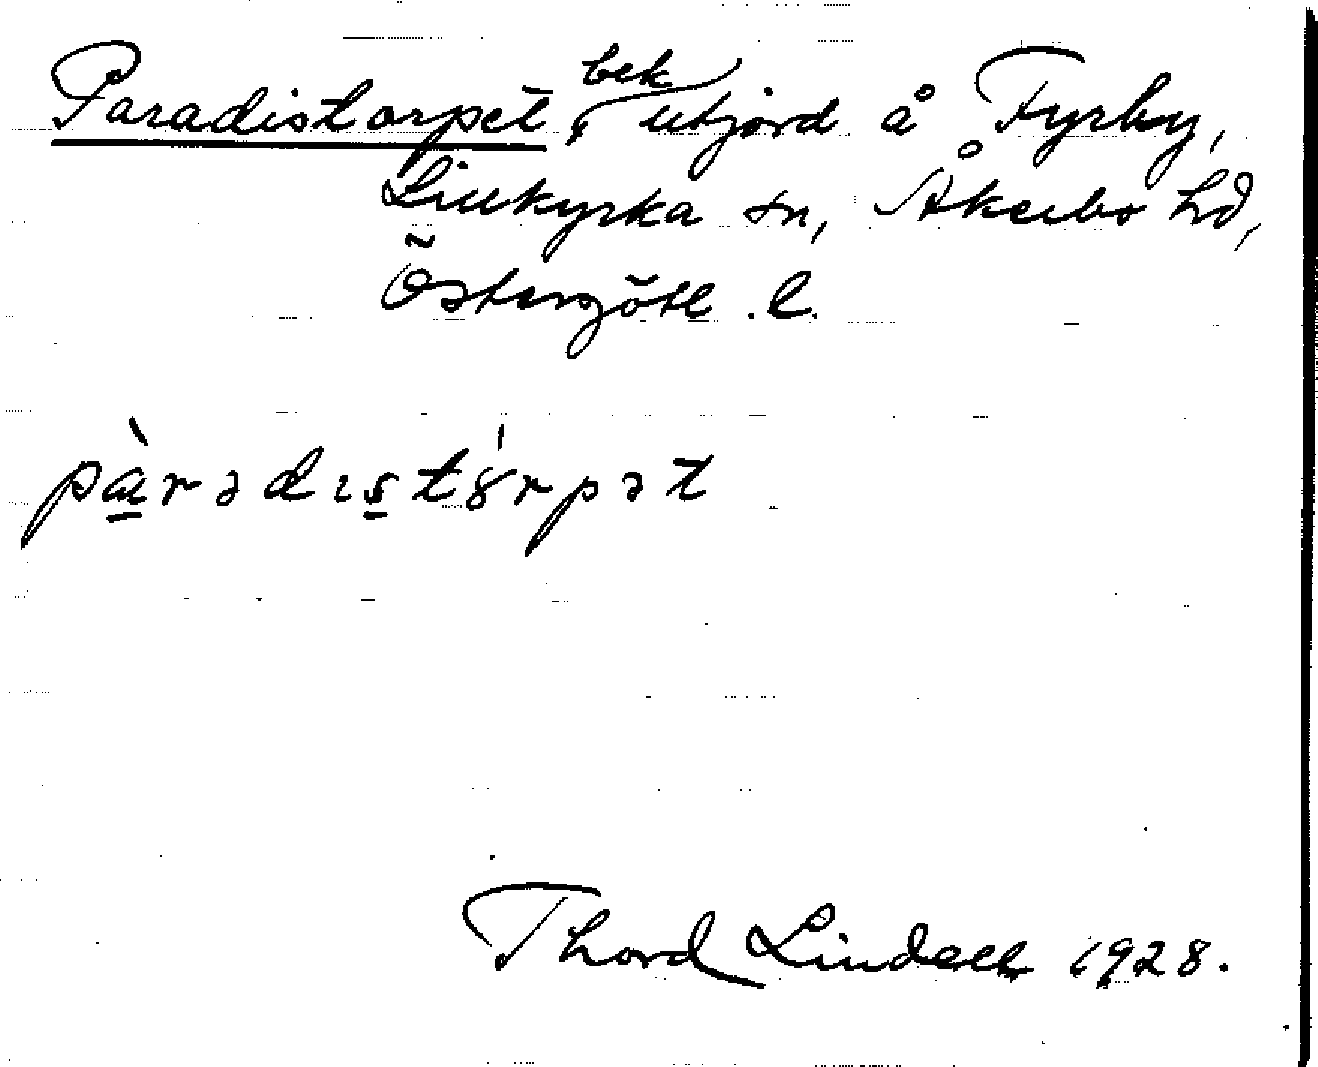 Paradistorpet, bek utjord å Fyrby,
Linkyrka sn, Åkerbo hd,
Östergötl. l.
pàradıstórpət
Thord Lindell 1928.